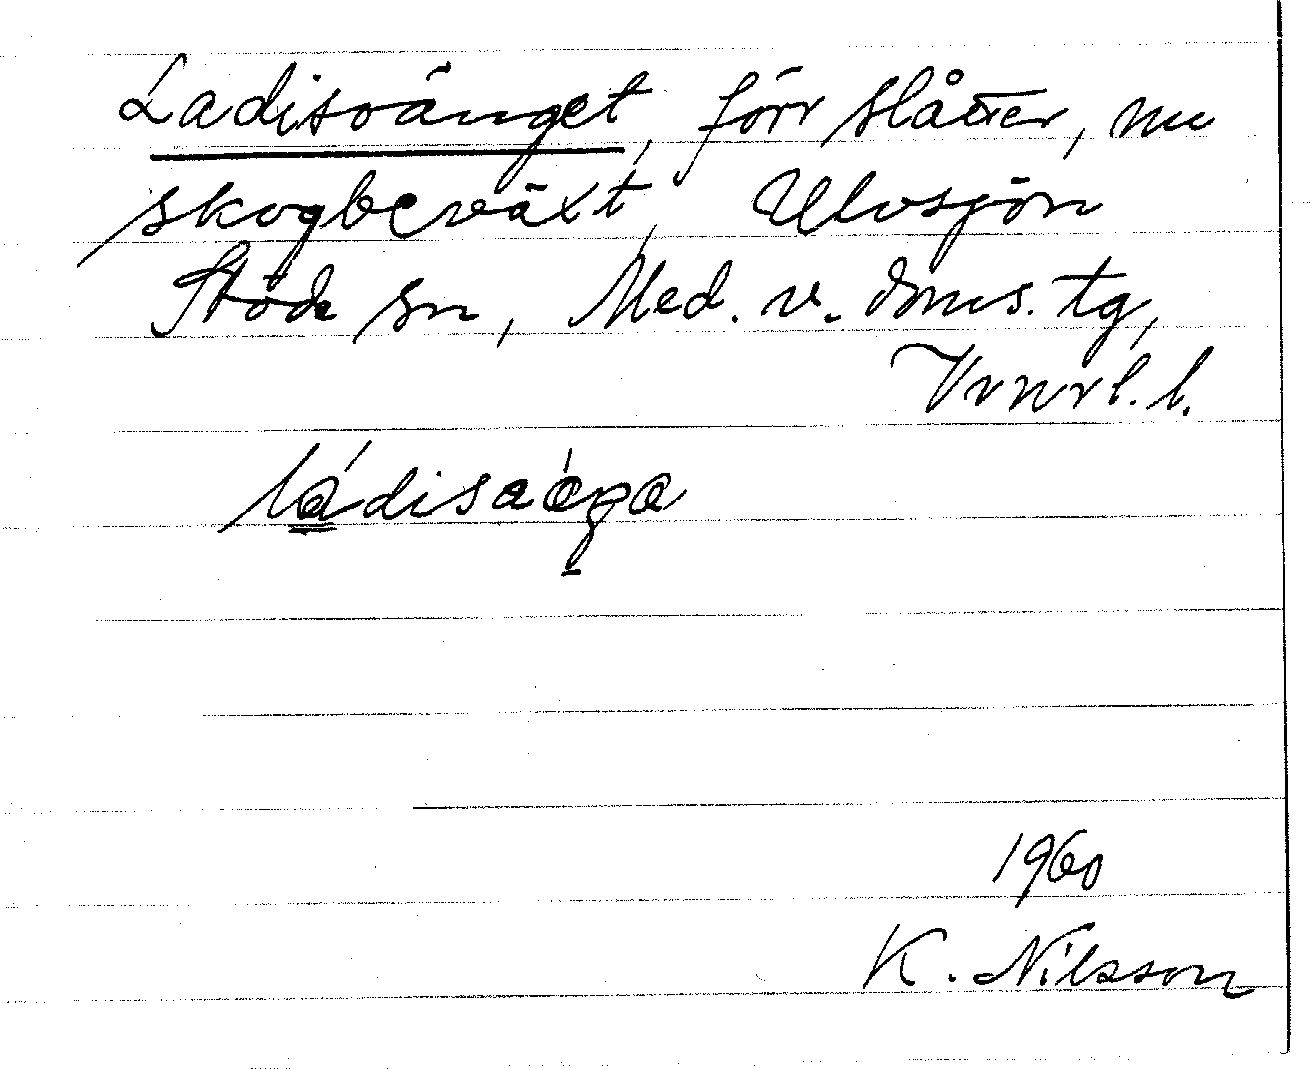 Ladisvänget, förr slåtter, nu
skogbeväxt, Ulvsjön
Stöde sn, Med. v. doms. tg,
Vrnrl. l.
1960
K. Nilsson